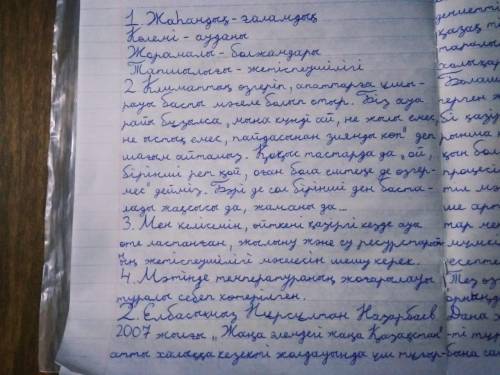 1. Жаһандық - ғаламдық
Көлемі - ауданы
Жорамалы - болжандары
Тапшылығы - жетіспеушілігі
2 Климаттың өзгеріп, апаттарға ұшы-
рауы басты мәселе болып отыр. Біз ауа
райы бұзылса „мына күнді ай, не жылы емес,
не ыстық емес, пайдасынан зияны көп" деп
шағым айтамыз. Қоқыс тастарда да „ой,
бірінші рет қой, оған бола ештеңе де өзгер-
мес" дейміз. Бәрі де сол бірінші ден баста-
лады жақсысы да, жаманы да...
3. Мен келісемін, өйткені қазіргі кезде ауа
өте ластанған, жылыну және су ресурстарой
ның жетіспеушілігі мәселесін шешу керек.
4. Мәтінде температураның жоғарылауы
туралы себеп көтерілген.
2. Елбасының Нұрсұлтан Назарбаев
2007 жылғы „Жаңа әлемдегі жаңа Қазақстан"
атты халыққа кезекті жолдауында үш тұғыр-